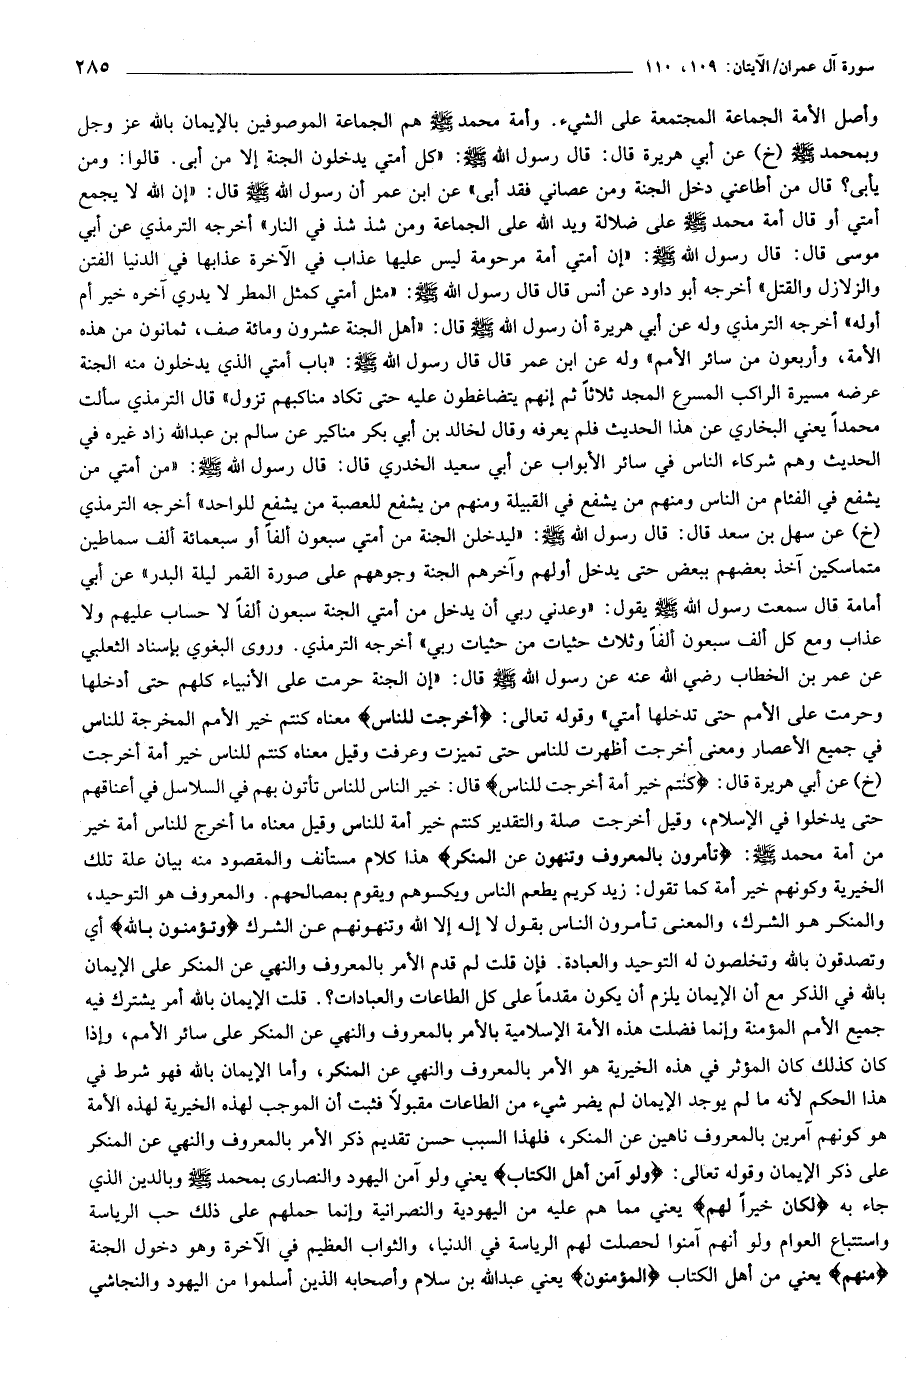 سورة آل عمران/ الآيتان: ١٠٩، ١١٠ ٢٨٥
وأصل الأمة الجماعة المجتمعة على الشيء. وأمة محمد ﷺ هم الجماعة الموصوفين بالإيمان بالله عز وجل
وبمحمد ﷺ (خ) عن أبي هريرة قال: قال رسول الله ﷺ: «كل أمتي يدخلون الجنة إلا من أبى. قالوا: ومن
يأبى؟ قال من أطاعني دخل الجنة ومن عصاني فقد أبى» عن ابن عمر أن رسول الله ﷺ قال: «إن الله لا يجمع
أمتي أو قال أمة محمد ﷺ على ضلالة ويد الله على الجماعة ومن شذ شذ في النار» أخرجه الترمذي عن أبي
موسى قال: قال رسول الله ﷺ: «إن أمتي أمة مرحومة ليس عليها عذاب في الآخرة عذابها في الدنيا الفتن
والزلازل والقتل» أخرجه أبو داود عن أنس قال قال رسول الله ﷺ: «مثل أمتي كمثل المطر لا يدري آخره خير أم
أوله» أخرجه الترمذي وله عن أبي هريرة أن رسول الله ﷺ قال: «أهل الجنة عشرون ومائة صف، ثمانون من هذه
الأمة، وأربعون من سائر الأمم» وله عن ابن عمر قال قال رسول الله ﷺ: «باب أمتي الذي يدخلون منه الجنة
عرضه مسيرة الراكب المسرع المجد ثلاثاً ثم إنهم يتضاغطون عليه حتى تكاد مناكبهم تزول» قال الترمذي سألت
محمداً يعني البخاري عن هذا الحديث فلم يعرفه وقال لخالد بن أبي بكر مناكير عن سالم بن عبدالله زاد غيره في
الحديث وهم شركاء الناس في سائر الأبواب عن أبي سعيد الخدري قال: قال رسول الله ﷺ: «من أمتي من
يشفع في الفئام من الناس ومنهم من يشفع في القبيلة ومنهم من يشفع للعصبة من يشفع للواحد» أخرجه الترمذي
(خ) عن سهل بن سعد قال: قال رسول الله ﷺ: «ليدخلن الجنة من أمتي سبعون ألفاً أو سبعمائة ألف سماطين
متماسكين آخذ بعضهم ببعض حتى يدخل أولهم وآخرهم الجنة وجوههم على صورة القمر ليلة البدر» عن أبي
أمامة قال سمعت رسول الله ﷺ يقول: «وعدني ربي أن يدخل من أمتي الجنة سبعون ألفاً لا حساب عليهم ولا
عذاب ومع كل ألف سبعون ألفاً وثلاث حثيات من حثيات ربي» أخرجه الترمذي. وروى البغوي بإسناد الثعلبي
عن عمر بن الخطاب رضي الله عنه عن رسول الله ﷺ قال: «إن الجنة حرمت على الأنبياء كلهم حتى أدخلها
وحرمت على الأمم حتى تدخلها أمتي» وقوله تعالى: ﴿أخرجت للناس﴾ معناه كنتم خير الأمم المخرجة للناس
في جميع الأعصار ومعنى أخرجت أظهرت للناس حتى تميزت وعرفت وقيل معناه كنتم للناس خير أمة أخرجت
(خ) عن أبي هريرة قال: ﴿كنتم خير أمة أخرجت للناس﴾ قال: خير الناس للناس تأتون بهم في السلاسل في أعناقهم
حتى يدخلوا في الإسلام، وقيل أخرجت صلة والتقدير كنتم خير أمة للناس وقيل معناه ما أخرج للناس أمة خير
من أمة محمد ﷺ: ﴿تأمرون بالمعروف وتنهون عن المنكر﴾ هذا كلام مستأنف والمقصود منه بيان علة تلك
الخيرية وكونهم خير أمة كما تقول: زيد كريم يطعم الناس ويكسوهم ويقوم بمصالحهم. والمعروف هو التوحيد،
والمنكر هو الشرك، والمعنى تأمرون الناس بقول لا إله إلا الله وتنهونهم عن الشرك ﴿وتؤمنون بالله﴾ أي
وتصدقون بالله وتخلصون له التوحيد والعبادة. فإن قلت لم قدم الأمر بالمعروف والنهي عن المنكر على الإيمان
بالله في الذكر مع أن الإيمان يلزم أن يكون مقدماً على كل الطاعات والعبادات؟. قلت الإيمان بالله أمر يشترك فيه
جميع الأمم المؤمنة وإنما فضلت هذه الأمة الإسلامية بالأمر بالمعروف والنهي عن المنكر على سائر الأمم، وإذا
كان كذلك كان المؤثر في هذه الخيرية هو الأمر بالمعروف والنهي عن المنكر، وأما الإيمان بالله فهو شرط في
هذا الحكم لأنه ما لم يوجد الإيمان لم يضر شيء من الطاعات مقبولاً فثبت أن الموجب لهذه الخيرية لهذه الأمة
هو كونهم آمرين بالمعروف ناهين عن المنكر، فلهذا السبب حسن تقديم ذكر الأمر بالمعروف والنهي عن المنكر
على ذكر الإيمان وقوله تعالى: ﴿ولو آمن أهل الكتاب﴾ يعني ولو آمن اليهود والنصارى بمحمد ﷺ وبالدين الذي
جاء به ﴿لكان خيراً لهم﴾ يعني مما هم عليه من اليهودية والنصرانية وإنما حملهم على ذلك حب الرياسة
واستتباع العوام ولو أنهم آمنوا لحصلت لهم الرياسة في الدنيا، والثواب العظيم في الآخرة وهو دخول الجنة
﴿منهم﴾ يعني من أهل الكتاب ﴿المؤمنون﴾ يعني عبدالله بن سلام وأصحابه الذين أسلموا من اليهود والنجاشي